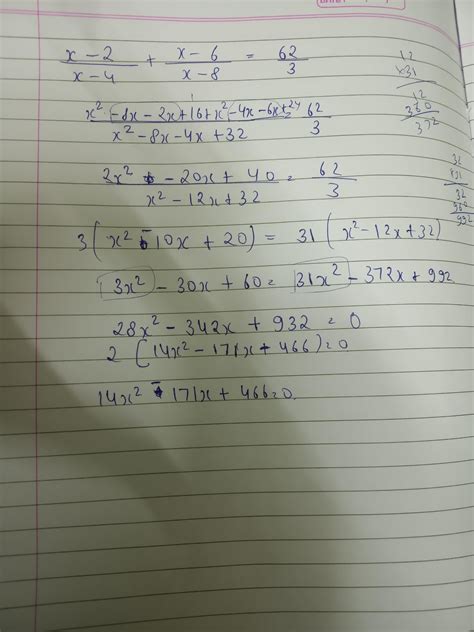 x - 2 / x - 4 + x - 6 / x - 8 = 62 / 3
x² - 8x - 2x + 16 + x² - 4x - 6x + 24 / x² - 8x - 4x + 32 = 62 / 3
2x² - 20x + 40 / x² - 12x + 32 = 62 / 3
3 ( x² - 10x + 20 ) = 31 ( x² - 12x + 32 )
3x² - 30x + 60 = 31x² - 372x + 992
28x² - 342x + 932 = 0
2 ( 14x² - 171x + 466 ) = 0
14x² - 171x + 466 = 0.
12
×31
12
360
372
32
×31
32
992